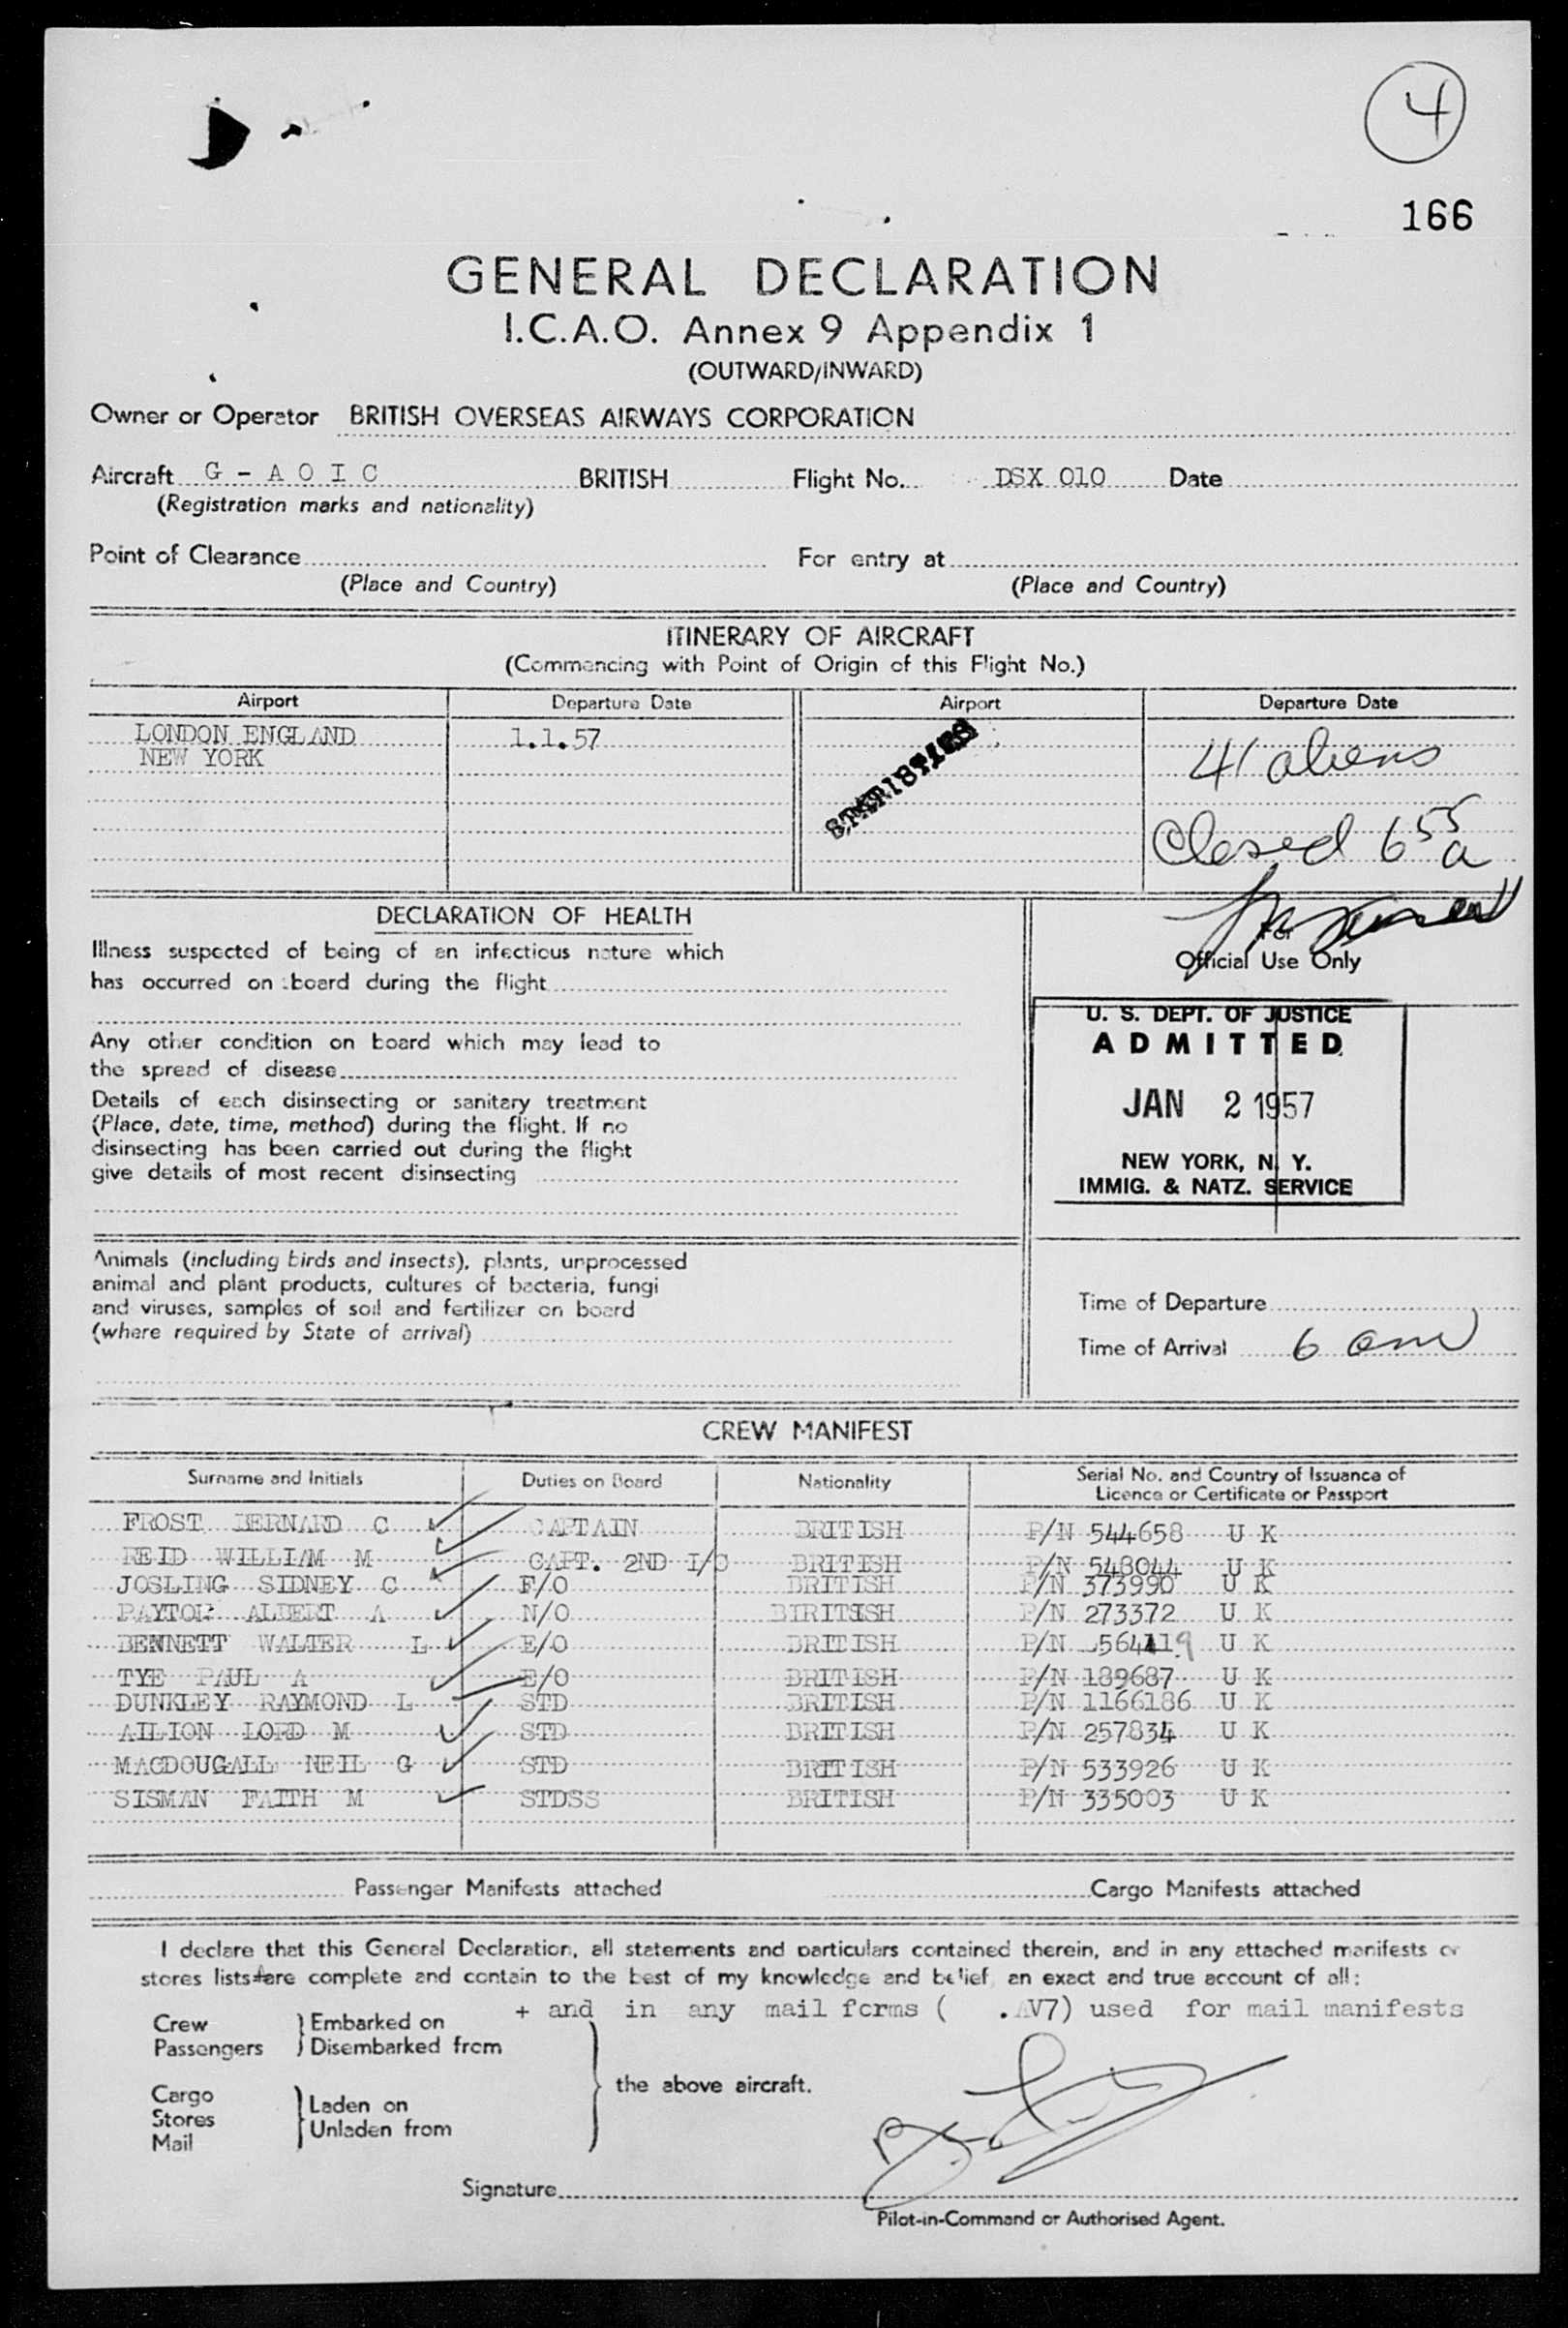 4
166
GENERAL DECLARATION
I.C.A.O. Annex 9 Appendix 1
(OUTWARD/INWARD)
Owner or Operator BRITISH OVERSEAS AIRWAYS CORPORATION
Aircraft G - A O I C BRITISH Flight No. DSX 010 Date
(Registration marks and nationality)
Point of Clearance For entry at
(Place and Country) (Place and Country)
ITINERARY OF AIRCRAFT
(Commencing with Point of Origin of this Flight No.)
Airport Departure Date Airport Departure Date
LONDON ENGLAND 1.1.57
NEW YORK
41 aliens
Closed 6 55 a
DECLARATION OF HEALTH
Illness suspected of being of an infectious nature which
has occurred on board during the flight
Any other condition on board which may lead to
the spread of disease
Details of each disinsecting or sanitary treatment
(Place, date, time, method) during the flight. If no
disinsecting has been carried out during the flight
give details of most recent disinsecting
For
Official Use Only
U. S. DEPT. OF JUSTICE
ADMITTED
JAN 2 1957
NEW YORK, N. Y.
IMMIG. & NATZ. SERVICE
Animals (including birds and insects), plants, unprocessed
animal and plant products, cultures of bacteria, fungi
and viruses, samples of soil and fertilizer on board
(where required by State of arrival)
Time of Departure
Time of Arrival 6 am
CREW MANIFEST
Surname and Initials Duties on Board Nationality Serial No. and Country of Issuance of
Licence or Certificate or Passport
FROST BERNARD C CAPTAIN BRITISH P/N 544658 U K
REID WILLIAM M CAPT. 2ND I/C BRITISH P/N 548044 U K
JOSLING SIDNEY C F/O BRITISH P/N 373990 U K
PAYTOR ALBERT A N/O BIRITSISH P/N 273372 U K
BENNETT WALTER L E/O BRITISH P/N 564119 U K
TYE PAUL A E/O BRITISH P/N 189687 U K
DUNKLEY RAYMOND L STD BRITISH P/N 1166186 U K
AILION LORD M STD BRITISH P/N 257834 U K
MACDOUGALL NEIL G STD BRITISH P/N 533926 U K
SISMAN FAITH M STDSS BRITISH P/N 335003 U K
Passenger Manifests attached Cargo Manifests attached
I declare that this General Declaration, all statements and particulars contained therein, and in any attached manifests or
stores lists + are complete and contain to the best of my knowledge and belief, an exact and true account of all:
+ and in any mail forms ( .AV7) used for mail manifests
Crew Embarked on
Passengers Disembarked from
the above aircraft.
Cargo
Stores Laden on
Mail Unladen from
Signature
Pilot-in-Command or Authorised Agent.